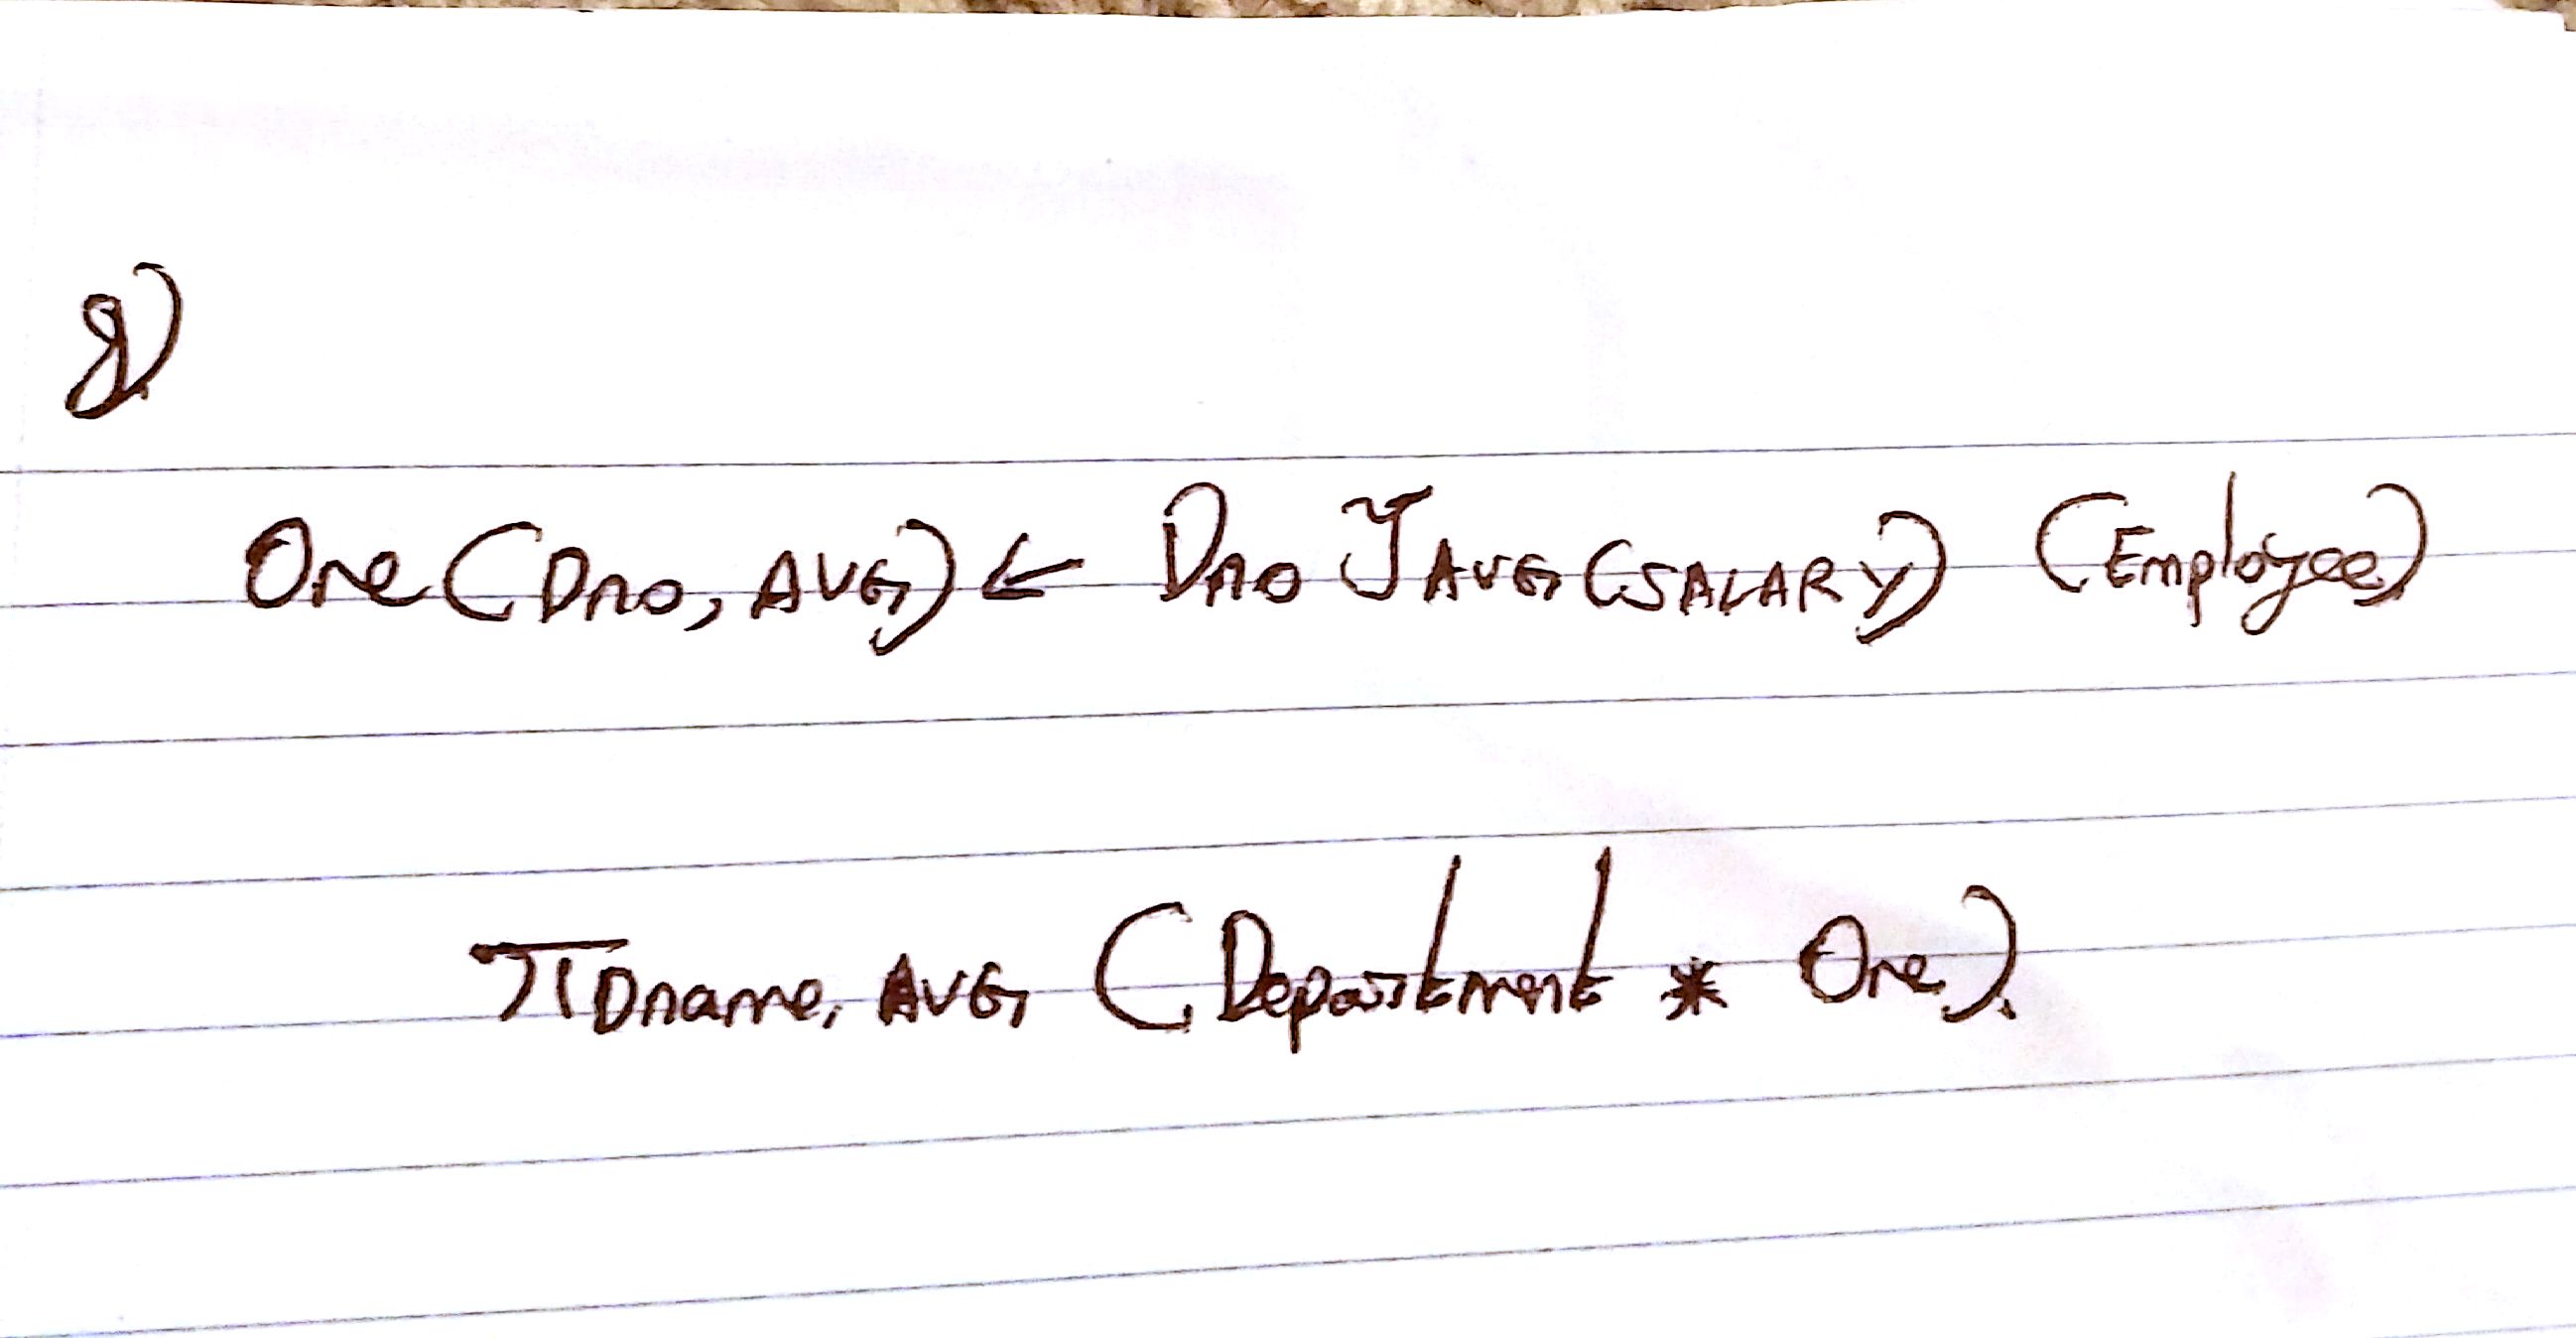 g)
One (Dno, AVG) ← Dno ℑ AVG (SALARY) (Employee)
π Dname, AVG (Department * One).